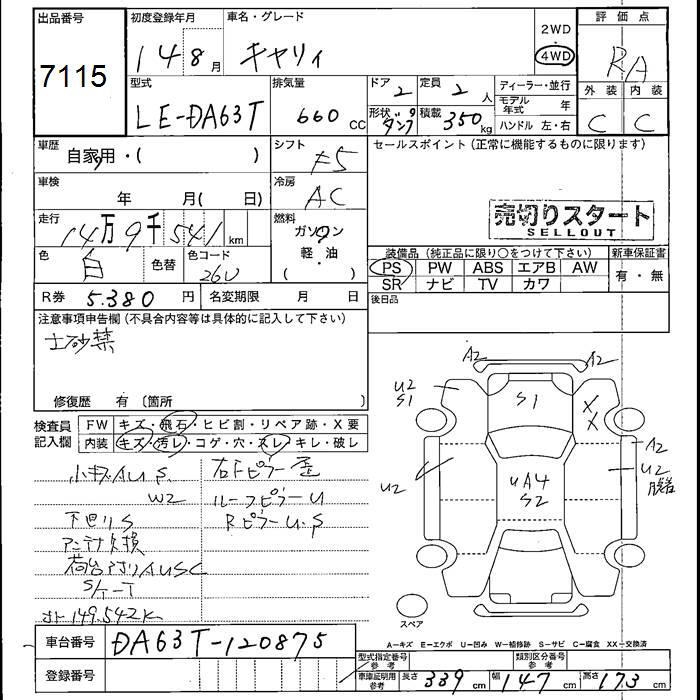 出品番号 初度登録年月 車名・グレード 2WD 評価点
7115 14 8月 キャリィ 4WD RA
型式 排気量 ドア 2 定員 2人 ディーラー・並行 外装 内装
モデル年式 年
LE-DA63T 660cc 形状 ダンプ 積載 350kg ハンドル 左・右 C C
車歴 自家用・( ) シフト F5 セールスポイント(正常に機能するものに限ります)
車検 年 月( 日) 冷房 AC
売切りスタート
SELLOUT
走行 14万9千541km 燃料 ガソリン
軽・油
色 白 色替 色コード 26U 装備品(純正品に限り○をつけて下さい) 新車保証書
PS PW ABS エアB AW 有・無
SR ナビ TV カワ
R券 5.380円 名変期限 月 日 後日品
注意事項申告欄(不具合内容等は具体的に記入して下さい)
土砂禁
修復歴 有〔箇所 〕
検査員 FW キズ・飛石・ヒビ割・リペア跡・X要
記入欄 内装 キズ・汚レ・コゲ・穴・スレ・キレ・破レ
A2 A2
U2 S1 S1 X X
A2
U2 UA4 S2 U2
小キズAU S 右Fピラー歪
W2 ルーフピラーU
下回りS RピラーU.S
アンテナ欠損
荷台アオリAUSC
149.542K
スペア
A―キズ E―エクボ U―凹み W―補修跡 S―サビ C―腐食 XX―交換済
車台番号 DA63T-120875
登録番号
型式指定番号 参考 類別区分番号 参考
車庫証明用 参考 長さ 339cm 幅 147cm 高さ 173cm